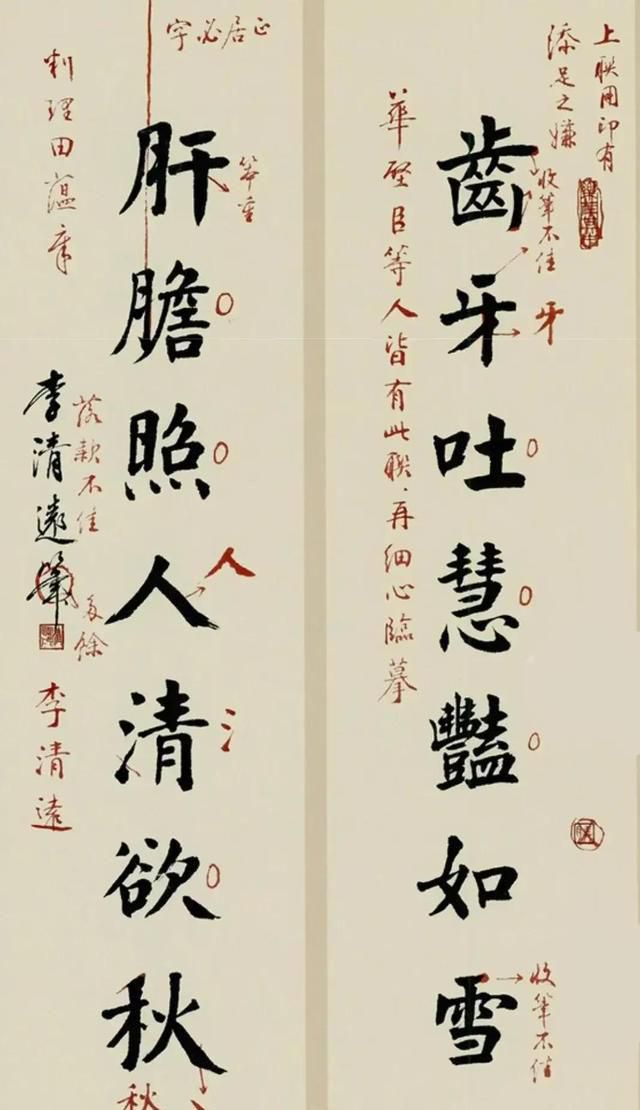 上联用印有
添足之嫌
收笔不佳
牙
齒牙吐慧豔如雪
收笔不佳
華 臣等人皆有此联.再细心臨摹
正居必字
笔重
肝膽照人清欲秋
人
氵
秋
落款不佳
多餘
李清遠
李清遠